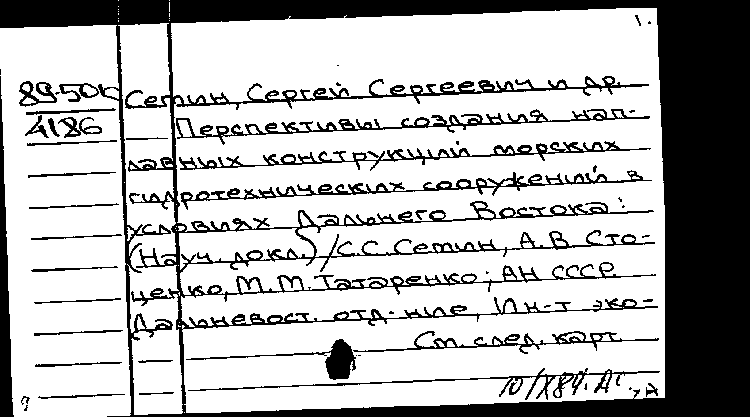 1.
89-50к
4186
Семин, Сергей Сергеевич и др.
Перспективы создания нап-
лавных конструкций морских
гидротехнических сооружений в
условиях Дальнего Востока:
(Науч. докл.) / С.С. Семин, А.В. Сто-
ценко, М.М. Татаренко; АН СССР.
Дальневост. отд-ние, Ин-т эко-
См. след. карт.
10/X89.